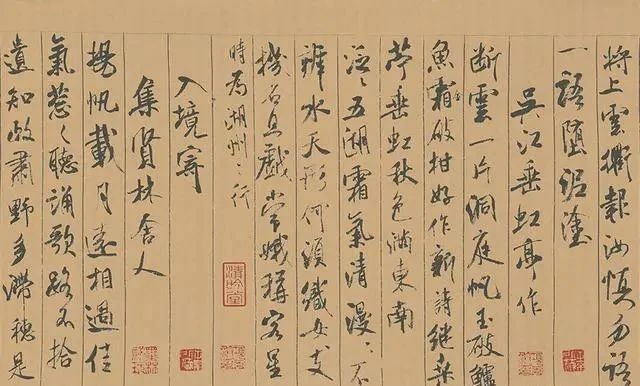 將上雲衢報汝慎勿語
一語墮泥塗
吳江垂虹亭作
断雲一片洞庭帆玉破鱸
魚霜金破柑好作新詩継桑
苧垂虹秋色滿東南
泛〻五湖霜氣清漫〻不
辨水天形何須織女支
機石且戲常娥稱客星
時為湖州之行
入境寄
集賢林舍人
揚帆載月遠相過佳
氣葱〻聽誦歌路不拾
遺知政肅野多滯穗是
清吟堂